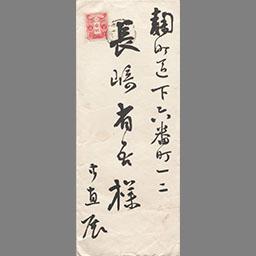 麹町区下六番町一二
長嶋有吾様
御直展